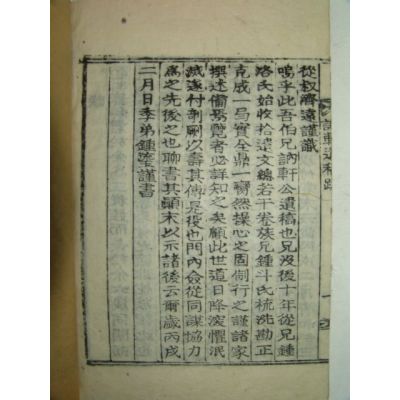 訥軒遺稿跋
一
從叔濟遠謹識
嗚乎此吾伯兄訥軒公遺稿也兄沒後十年從兄鍾
洛氏始收拾遺文總若干卷族兄鍾斗氏梳洗勘正
克成一局實全鼎一臠然操心之固制行之謹諸家
撰述備焉覽者必詳知之矣顧此世道日降深懼泯
滅遂付剞劂以壽其傳是役也門內僉從同謀協力
為之先後之也聊書其顛末以示諸後云爾歲丙戌
二月日季弟鍾瑩謹書